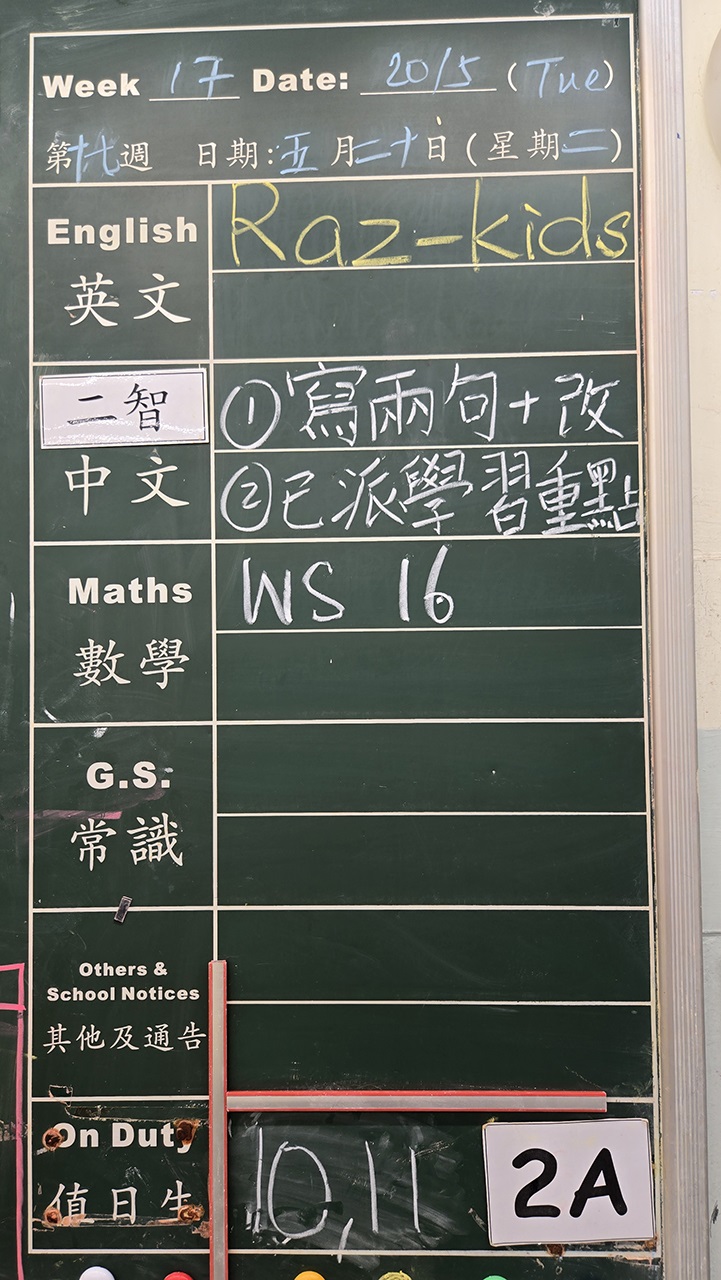 Week 17 Date: 20/5 (Tue)
第十七週 日期:五月二十日(星期二)
English
Raz-kids
英文
二智
①寫兩句+改
中文
②已派學習重點
Maths
WS 16
數學
G.S.
常識
Others &
School Notices
其他及通告
On Duty
值日生
10,11
2A